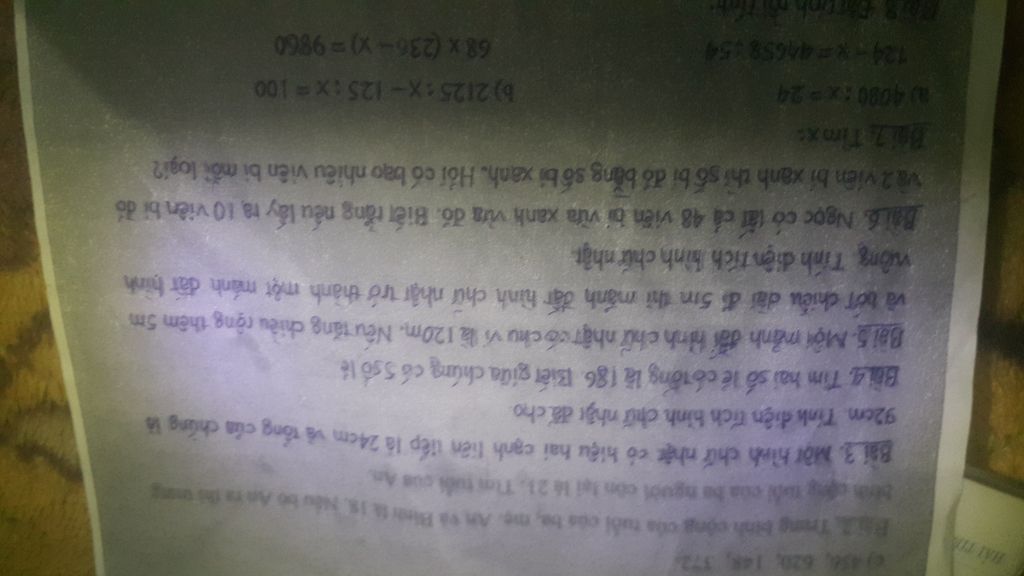 c) 456, 620, 148, 372.
Bài 2. Trung bình cộng của tuổi của ba, mẹ, An và Bình là 18. Nếu bỏ An ra thì trung
bình cộng tuổi của ba người còn lại là 21. Tìm tuổi của An.
Bài 3. Một hình chữ nhật có hiệu hai cạnh liên tiếp là 24cm và tổng của chúng là
92cm. Tính diện tích hình chữ nhật đã cho
Bài 4. Tìm hai số lẻ có tổng là 186. Biết giữa chúng có 5 số lẻ
Bài 5. Một mảnh đất hình chữ nhật có chu vi là 120m. Nếu tăng chiều rộng thêm 5m
và bớt chiều dài đi 5m thì mảnh đất hình chữ nhật trở thành một mảnh đất hình
vuông. Tính diện tích hình chữ nhật.
Bài 6. Ngọc có tất cả 48 viên bi vừa xanh vừa đỏ. Biết rằng nếu lấy ra 10 viên bi đỏ
và 2 viên bi xanh thì số bi đỏ bằng số bi xanh. Hỏi có bao nhiêu viên bi mỗi loại?
Bài 7. Tìm x:
a) 4080 : x = 24 b) 2125 : x – 125 : x = 100
124 – x = 44658 : 54 68 x (236 – x) = 9860
Bài 8. Đặt tính rồi tính:
HẢI TIẾ